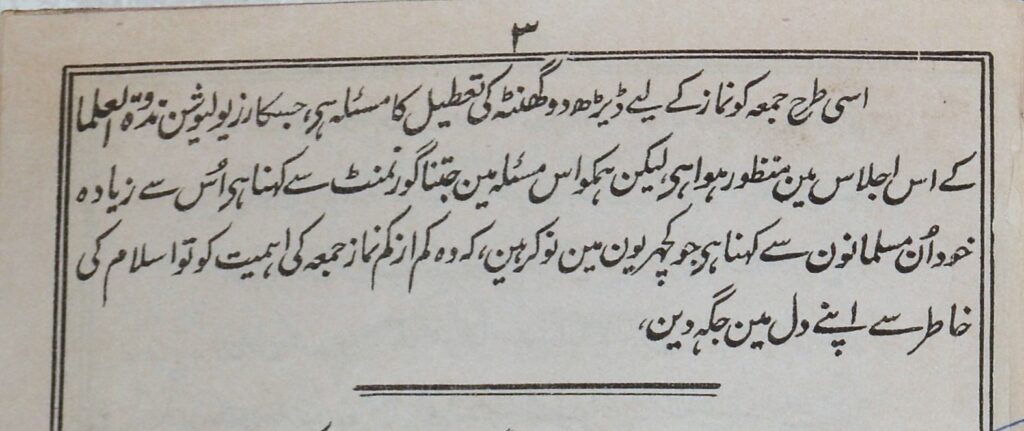 ۳
اسی طرح جمعہ کو نماز کے لیے ڈیڑھ دو گھنٹہ کی تعطیل کا مسئلہ ہی، جسکا رزیولیوشن ندوۃ العلما
کے اس اجلاس مین منظور ہوا ہی لیکن ہمکو اس مسئلہ مین جتنا گورنمنٹ سے کہنا ہی اُس سے زیادہ
خود اُن مسلمانون سے کہنا ہی جو کچہریون مین نوکر ہین، کہ وہ کم از کم نماز جمعہ کی اہمیت کو تو اسلام کی
خاطر سے اپنے دل مین جگہ دین،